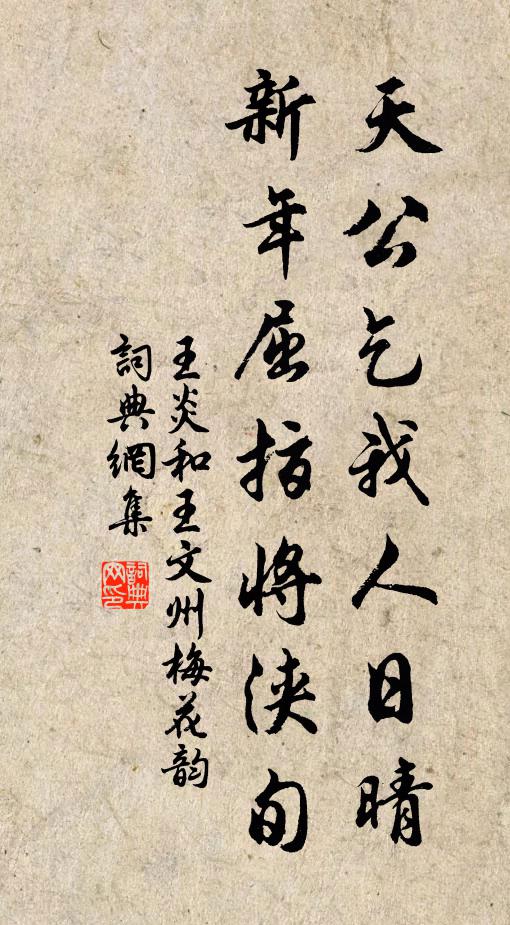 天公乞我人日晴
新年屈指将浃旬
王炎和王文州梅花韵
詞典網集
詞典网印